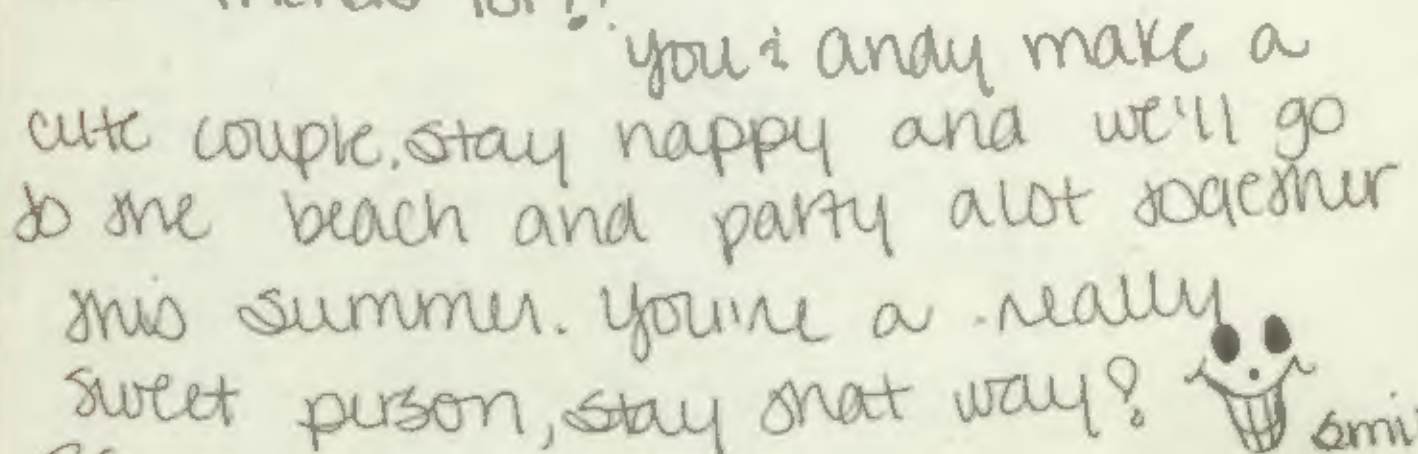 you & andy make a
cute couple. stay happy and we'll go
to the beach and party alot together
this summer. you're a really
sweet person, stay that way!